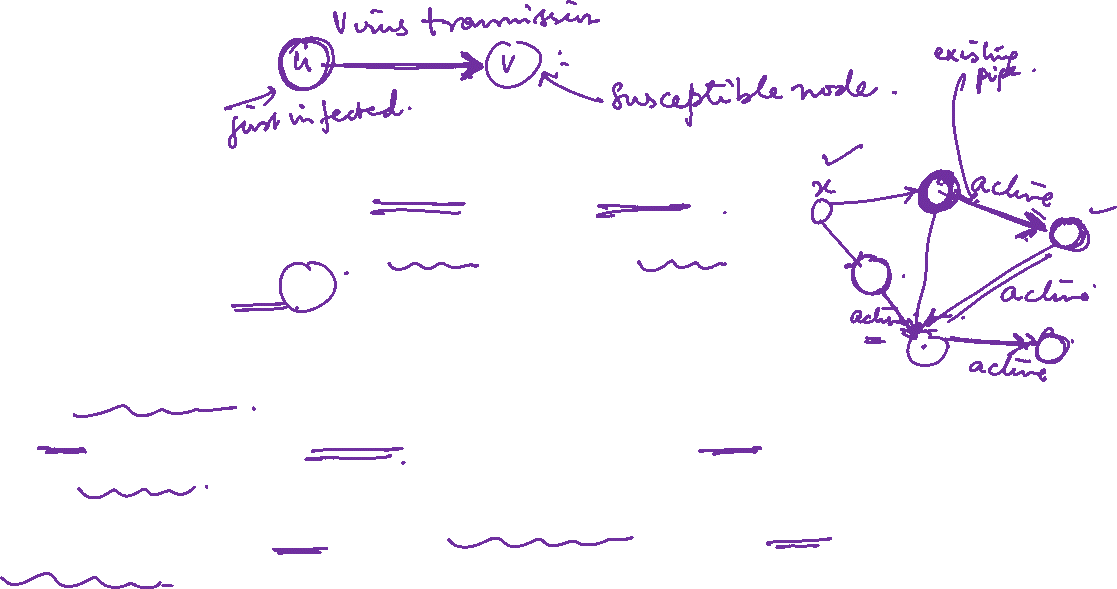 Virus transmission
u
v
just infected.
Susceptible node.
existing
pipe.
x
active
active
active
active